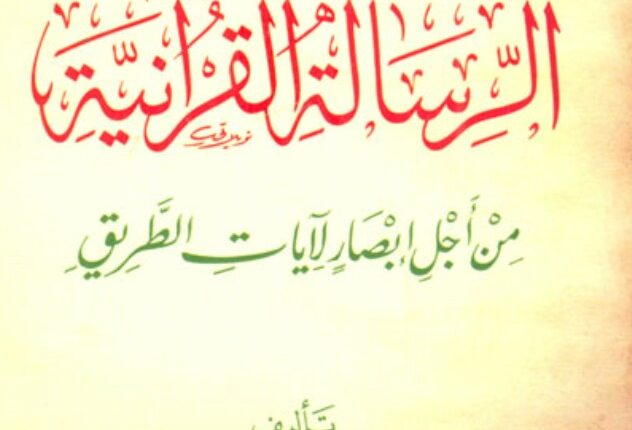 الرِّسَالَةِ القُرْآنِيَّةِ
مِنْ أَجْلِ إِبْصَارٍ لِآيَاتِ الطَّرِيقِ
تَأليف